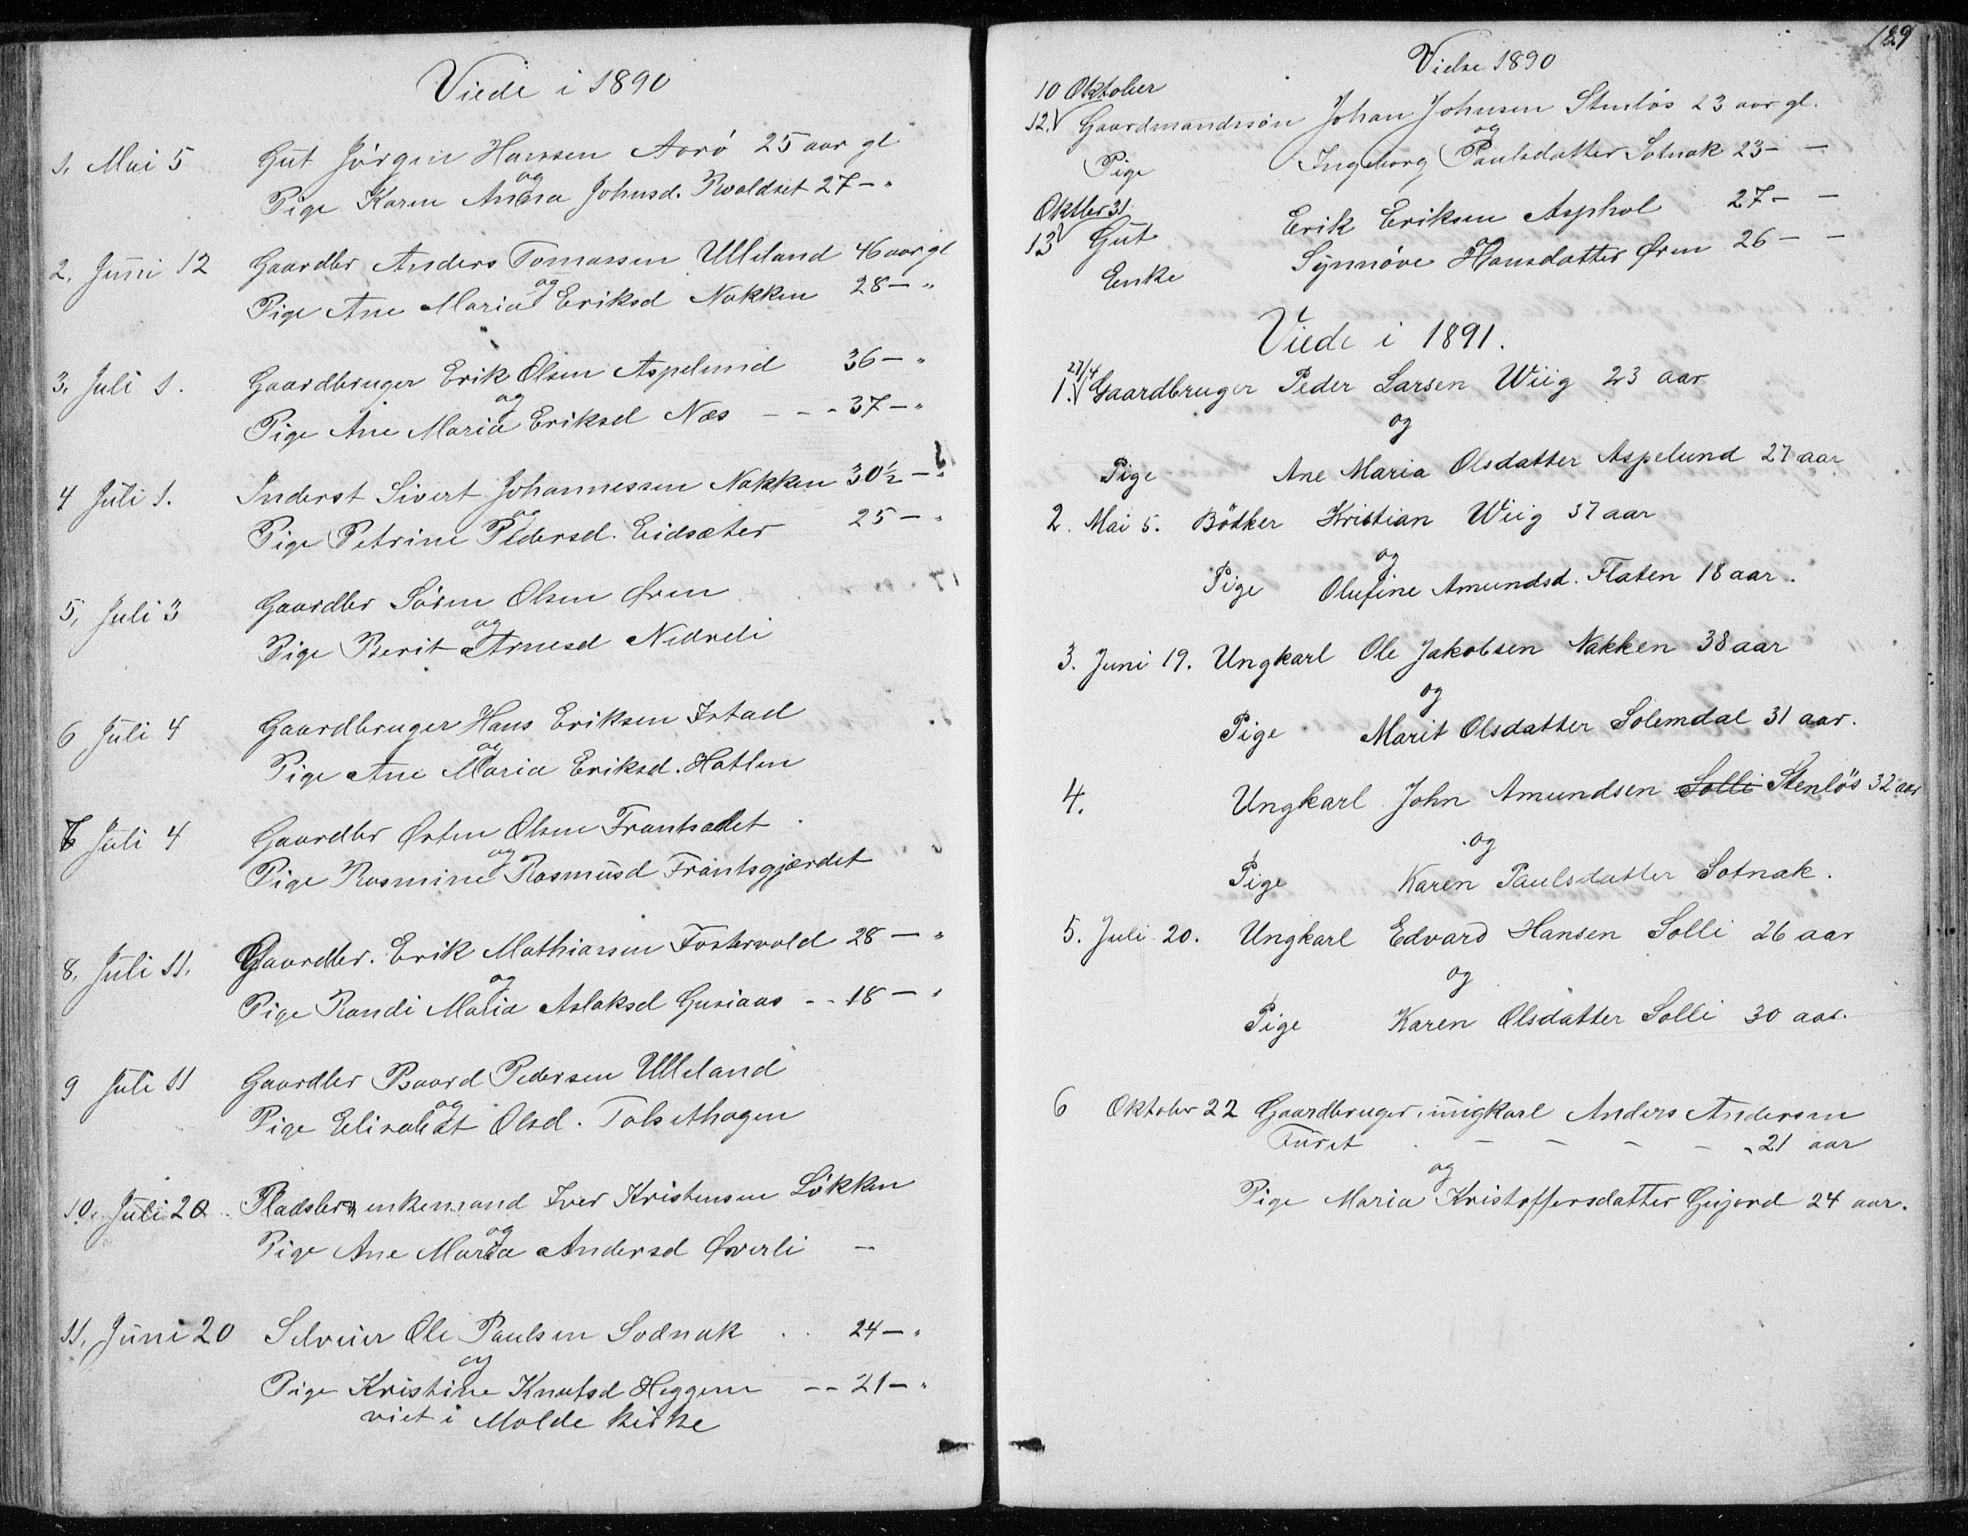 Viede i 1890
1. Mai 5 Gut Jørgen Hanssen Aarö 25 aar gl
og
Pige Karen Anna Johnsd. Roaldset 27 — "
2. Juni 12 Gaardbr Anders Tomassen Ulleland 46 aar gl
og
Pige Ane Maria Eriksd Nakken 28 — "
3. Juli 1. Gaardbruger Erik Olsen Aspelund 36 — "
og
Pige Ane Maria Eriksd Næs — — - 37 — "
4 Juli 1. Inderst Sivert Johannessen Nakken 30½ — "
og
Pige Petrine Pedersd. Eidsæter 25 — "
5, Juli 3 Gaardbr Sören Olsen Ören
og
Pige Berit Arnesd Nedreli
6 Juli 4 Gaardbruger Hans Eriksen Istad
og
Pige Ane Maria Eriksd. Hatlen
7 Juli 4 Gaardbr Østen Olsen
og
Pige Rasmine Rasmusd Frantsgjærdet
8. Juli 11. Gaardbr. Erik Mathiassen Fostervold 28 — "
og
Pige Randi Maria Aslaksd Gusiaas - - 18 — "
9 Juli 11 Gaardbr Baard Pedersen Ulleland
og
Pige Elisabet Olsd. Tolsethagen
10. Juli 20 Pladsbr enkemand Iver Kristensen Lökken
og
Pige Ane Maria Andersd Øverli —
11. Juni 20 Selveier Ole Paulsen Sodnak . . 24 — "
og
Pige Kristine Knutsd Heggem -- 21 — "
viet i Molde kirke
129
Vielse 1890
10 Oktober
12. V Gaardmandssön Johan Johnsen Stenlös 23 aar gl.
og
Pige Ingeborg Paulsdatter Sotnak 23 — —
Oktber 31
13 V Gut Erik Eriksen Asphol 27 — —
Enke Synnöve Hansdatter Ören 26 — —
Viede i 1891.
27/4
1. V Gaardbruger Peder Larsen Wiig 23 aar
og
Pige Ane Maria Olsdatter Aspelund 27 aar
2. Mai 5. Bödker Kristian Wiig 37 aar
og
Pige Olufine Amundsd. Flaten 18 aar.
3. Juni 19. Ungkarl Ole Jakobsen Nakken 38 aar
og
Pige Marit Olsdatter Solemdal 31 aar.
4. Ungkarl John Amundsen Solli Stenlös 32 aar
og
Pige Karen Paulsdatter Sotnak.
5. Juli 20. Ungkarl Edvard Hansen Solli 26 aar
og
Pige Karen Olsdatter Solli 30 aar.
6 Oktober 22 Gaardbruger, ungkarl Anders Andersen
Furset - - - - - 21 aar
og
Pige Maria Kristoffersdatter Gujord 24 aar.